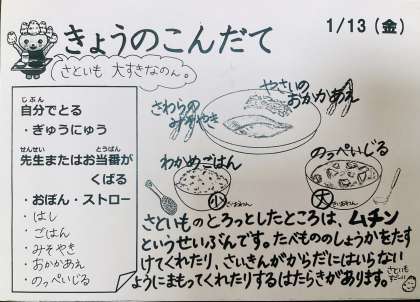 きょうのこんだて
1/13(金)
さといも 大すきなのん。
じぶん
自分でとる
・ぎゅうにゅう
せんせい とうばん
先生またはお当番が
くばる
・おぼん・ストロー
・はし
・ごはん
・みそやき
・おかかあえ
・のっぺいじる
やさいの
おかかあえ
さわらの
みそやき
わかめごはん
小
のっぺいじる
大
さといものとろっとしたところは、ムチン
というせいぶんです。たべもののしょうかをたす
けてくれたり、さいきんがからだにはいらない
ようにまもってくれたりするはたらきがあります。